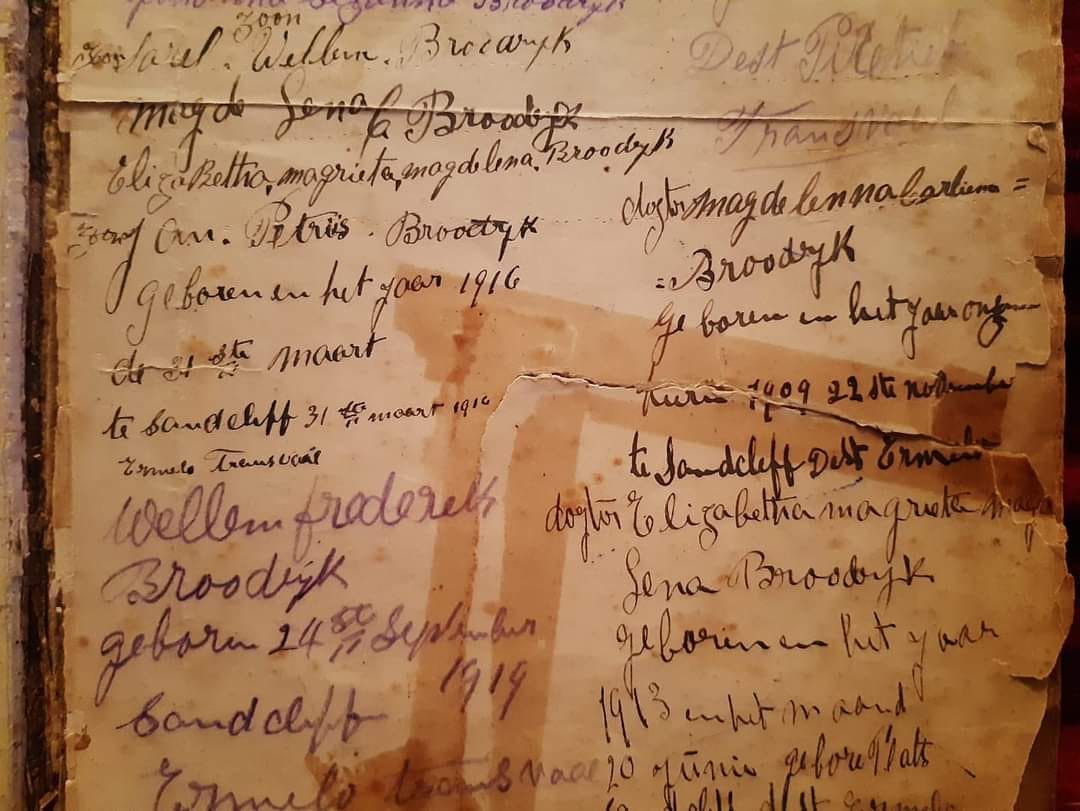 Susanna Broodryk
zoon
zoon Sarel. Wellem. Broodryk
magde Lena C Broodryk
Elizabetha, magrieta, magdelena. Broodryk
zoon Jan. Petrus. Broodryk
geboren en het jaar 1916
de 31 ste maart
te Sandcliff 31 ste maart 1916
Ermelo Transvaal
Wellem frederek
Broodryk
geboren 24 ste September
1919
Sandcliff
Ermelo transvaal
Dest Piketief
Transvaal
dogtor magdelenna Carliena =
= Broodryk
geboren en het jaar
1909 22 ste november
te Sandcliff Dest Ermelo
dogtor Elizabetha magrieta magde
Lena Broodryk
geboren en het jaar
1913 en het maand
20 Junie gebore Plats
dest Ermelo